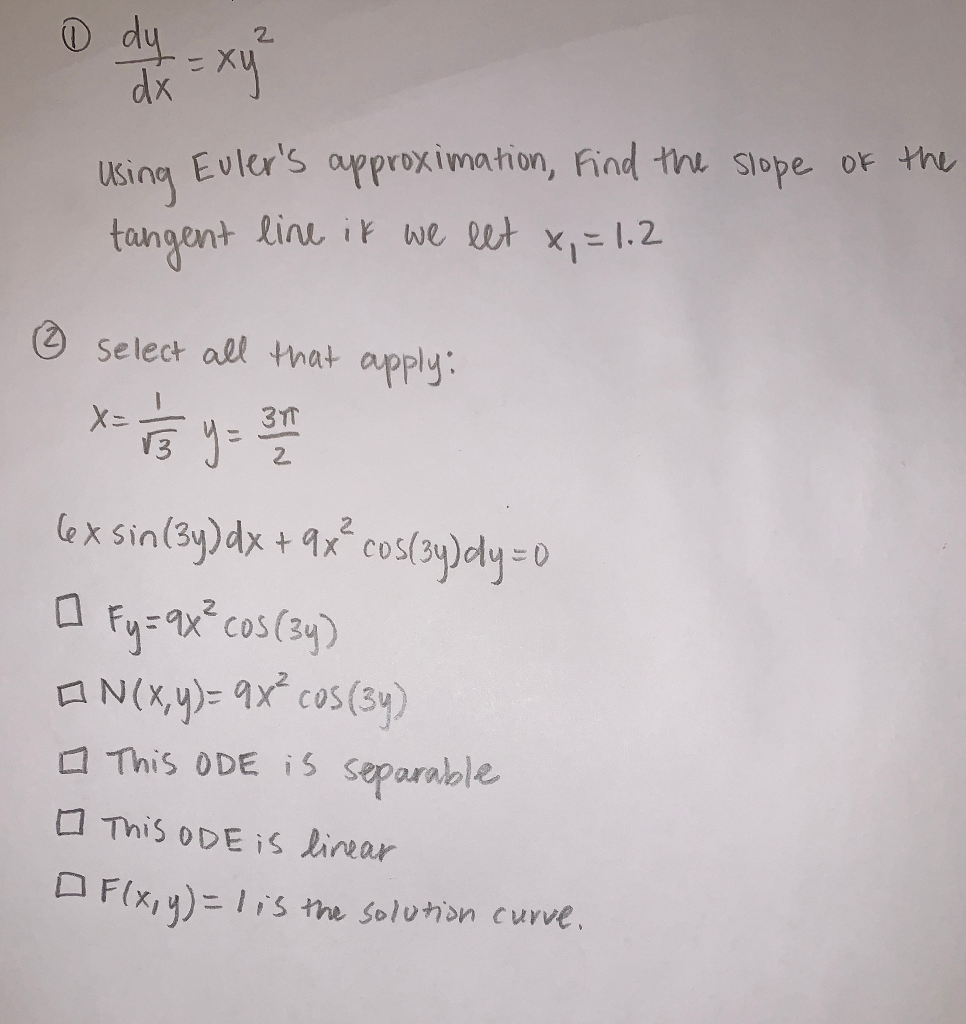 ① dy/dx = xy²
Using Euler's approximation, Find the slope of the
tangent line if we let x₁ = 1.2
② Select all that apply:
x = 1/√3 y = 3π/2
6x sin(3y)dx + 9x² cos(3y)dy = 0
□ Fy = 9x² cos(3y)
□ N(x,y) = 9x² cos(3y)
□ This ODE is separable
□ This ODE is linear
□ F(x,y) = 1 is the solution curve.